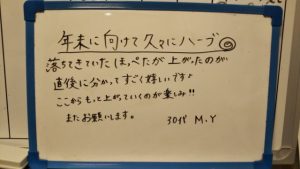 年末に向けて久々にハーブ◎
落ちてきていたほっぺたが上がったのが
直後に分かってすごく嬉しいです♪
ここからもっと上がっていくのが楽しみ!!
またお願いします。
30代 M.Y